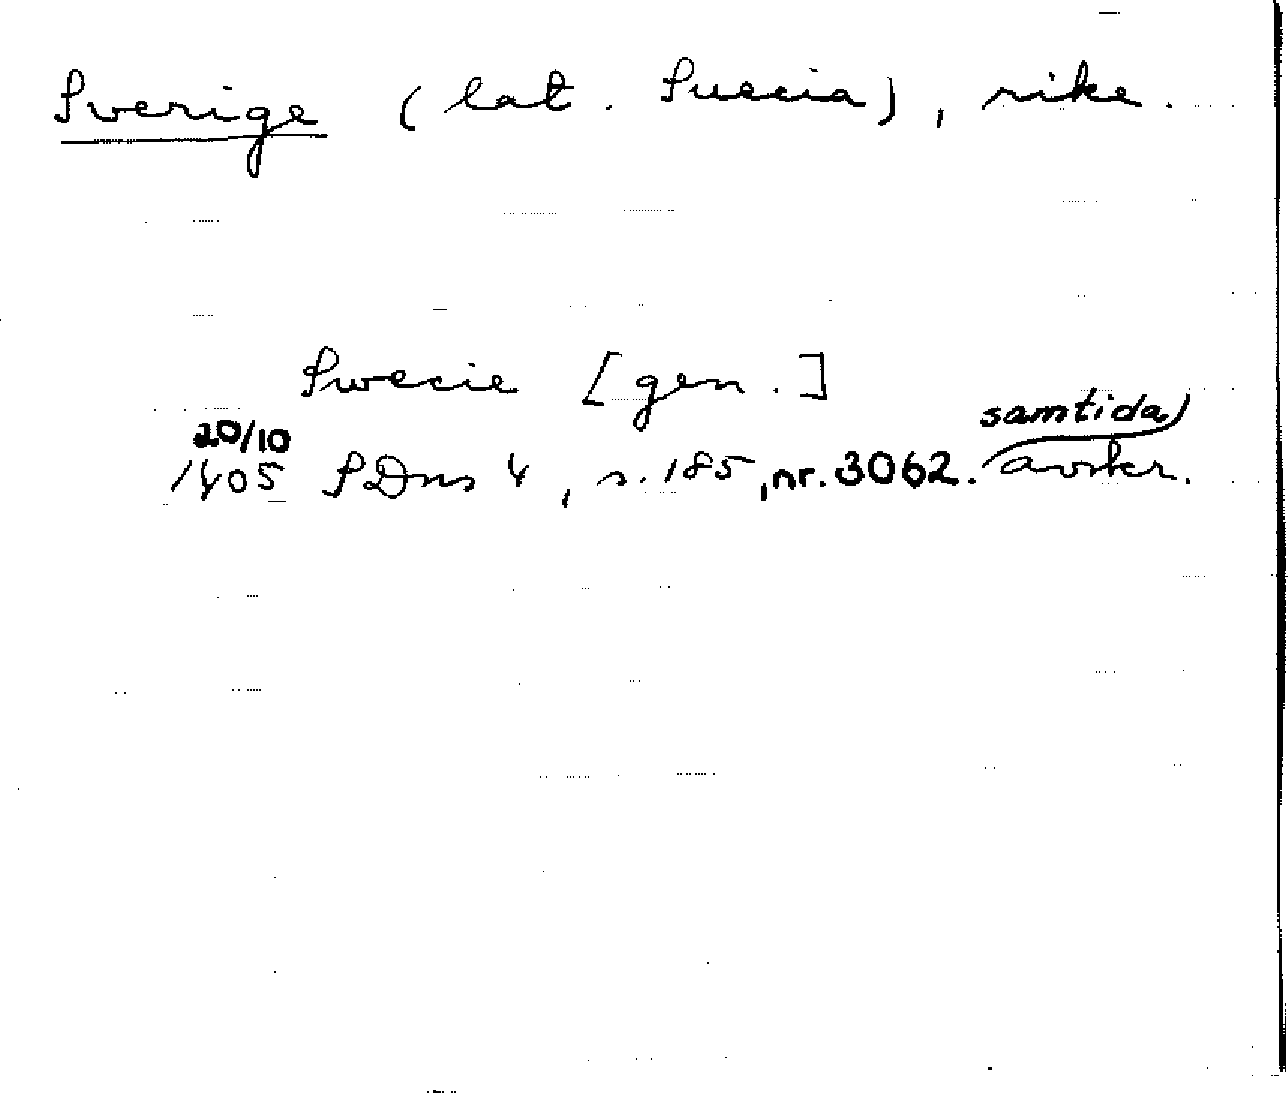 Sverige (lat. Suecia), rike.
Swecie [gen.]
20/10 samtida
1405 SDns 4, s. 185, nr. 3062. avskr.